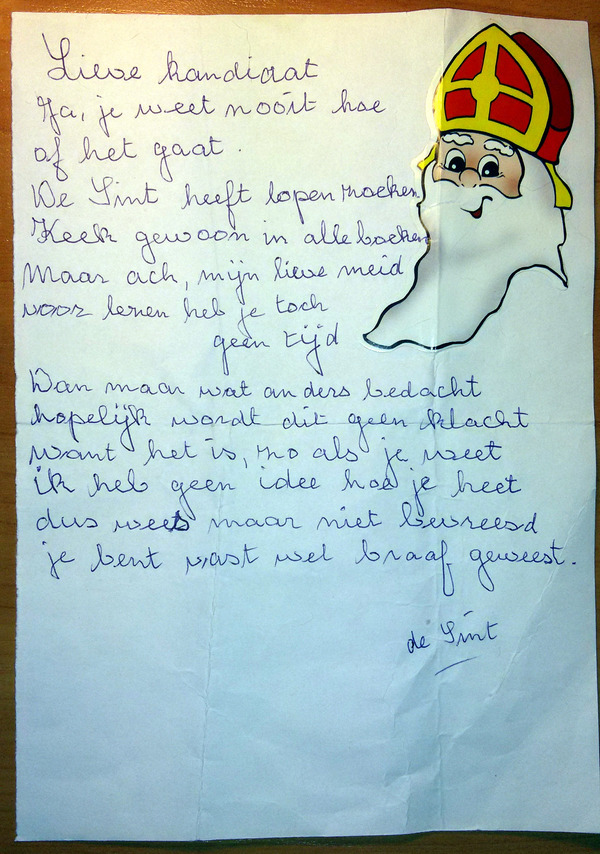 Lieve kandidaat
Ja, je weet nooit hoe
of het gaat.
De Sint heeft lopen zoeken
Keek gewoon in alle boeken
Maar ach, mijn lieve meid
voor lenen heb je toch
geen tijd
Dan maar wat anders bedacht
hopelijk wordt dit geen klacht
want het is, zo als je weet
ik heb geen idee hoe je heet
dus wees maar niet bevreesd
je bent vast wel braaf geweest.
de Sint